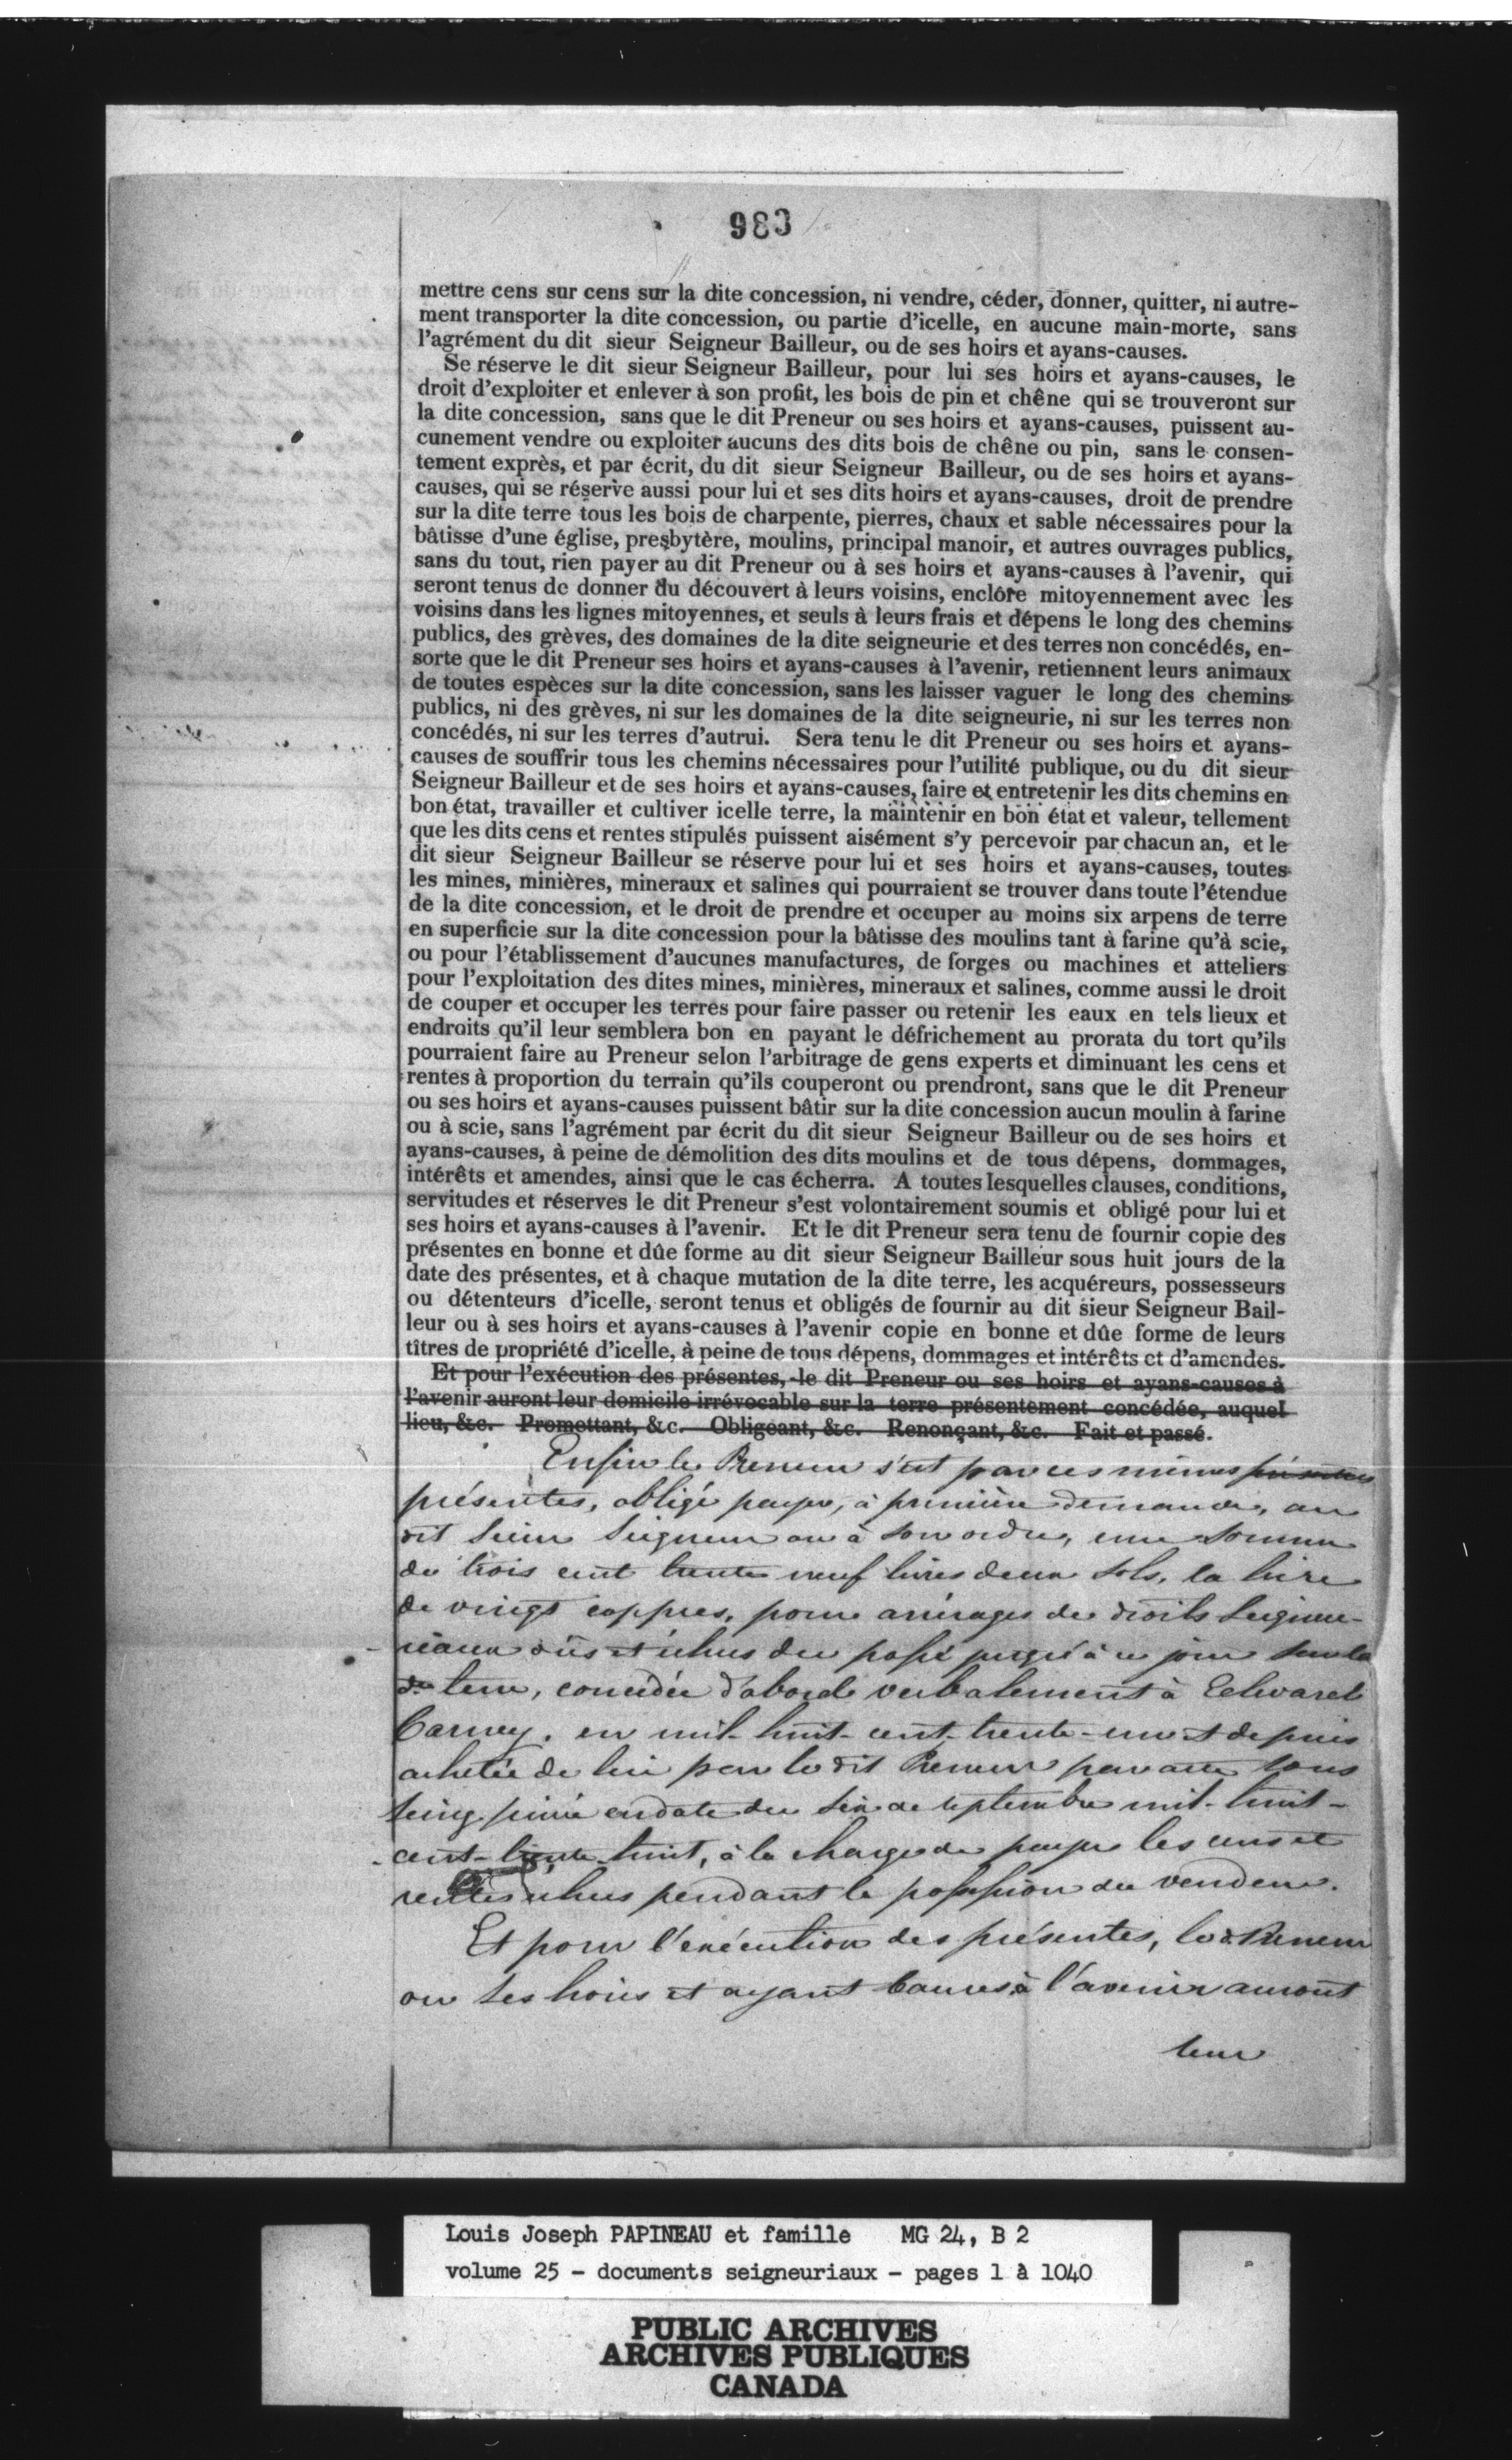 983
mettre cens sur cens sur la dite concession, ni vendre, céder, donner, quitter, ni autre-
ment transporter la dite concession, ou partie d'icelle, en aucune main-morte, sans
l'agrément du dit sieur Seigneur Bailleur, ou de ses hoirs et ayans-causes.
Se réserve le dit sieur Seigneur Bailleur, pour lui ses hoirs et ayans-causes, le
droit d'exploiter et enlever à son profit, les bois de pin et chêne qui se trouveront sur
la dite concession, sans que le dit Preneur ou ses hoirs et ayans-causes, puissent au-
cunement vendre ou exploiter aucuns des dits bois de chêne ou pin, sans le consen-
tement exprès, et par écrit, du dit sieur Seigneur Bailleur, ou de ses hoirs et ayans-
causes, qui se réserve aussi pour lui et ses dits hoirs et ayans-causes, droit de prendre
sur la dite terre tous les bois de charpente, pierres, chaux et sable nécessaires pour la
bâtisse d'une église, presbytère, moulins, principal manoir, et autres ouvrages publics,
sans du tout, rien payer au dit Preneur ou à ses hoirs et ayans-causes à l'avenir, qui
seront tenus de donner du découvert à leurs voisins, enclôre mitoyennement avec les
voisins dans les lignes mitoyennes, et seuls à leurs frais et dépens le long des chemins
publics, des grèves, des domaines de la dite seigneurie et des terres non concédés, en-
sorte que le dit Preneur ses hoirs et ayans-causes à l'avenir, retiennent leurs animaux
de toutes espèces sur la dite concession, sans les laisser vaguer le long des chemins
publics, ni des grèves, ni sur les domaines de la dite seigneurie, ni sur les terres non
concédés, ni sur les terres d'autrui. Sera tenu le dit Preneur ou ses hoirs et ayans-
causes de souffrir tous les chemins nécessaires pour l'utilité publique, ou du dit sieur
Seigneur Bailleur et de ses hoirs et ayans-causes, faire et entretenir les dits chemins en
bon état, travailler et cultiver icelle terre, la maintenir en bon état et valeur, tellement
que les dits cens et rentes stipulés puissent aisément s'y percevoir par chacun an, et le
dit sieur Seigneur Bailleur se réserve pour lui et ses hoirs et ayans-causes, toutes
les mines, minières, mineraux et salines qui pourraient se trouver dans toute l'étendue
de la dite concession, et le droit de prendre et occuper au moins six arpens de terre
en superficie sur la dite concession pour la bâtisse des moulins tant à farine qu'à scie,
ou pour l'établissement d'aucunes manufactures, de forges ou machines et atteliers
pour l'exploitation des dites mines, minières, mineraux et salines, comme aussi le droit
de couper et occuper les terres pour faire passer ou retenir les eaux en tels lieux et
endroits qu'il leur semblera bon en payant le défrichement au prorata du tort qu'ils
pourraient faire au Preneur selon l'arbitrage de gens experts et diminuant les cens et
rentes à proportion du terrain qu'ils couperont ou prendront, sans que le dit Preneur
ou ses hoirs et ayans-causes puissent bâtir sur la dite concession aucun moulin à farine
ou à scie, sans l'agrément par écrit du dit sieur Seigneur Bailleur ou de ses hoirs et
ayans-causes, à peine de démolition des dits moulins et de tous dépens, dommages,
intérêts et amendes, ainsi que le cas écherra. A toutes lesquelles clauses, conditions,
servitudes et réserves le dit Preneur s'est volontairement soumis et obligé pour lui et
ses hoirs et ayans-causes à l'avenir. Et le dit Preneur sera tenu de fournir copie des
présentes en bonne et dûe forme au dit sieur Seigneur Bailleur sous huit jours de la
date des présentes, et à chaque mutation de la dite terre, les acquéreurs, possesseurs
ou détenteurs d'icelle, seront tenus et obligés de fournir au dit sieur Seigneur Bail-
leur ou à ses hoirs et ayans-causes à l'avenir copie en bonne et dûe forme de leurs
tîtres de propriété d'icelle, à peine de tous dépens, dommages et intérêts et d'amendes.
Et pour l'exécution des présentes, le dit Preneur ou ses hoirs et ayans-causes à
l'avenir auront leur domicile irrévocable sur la terre présentement concédée, auquel
lieu, &c. Promettant, &c. Obligeant, &c. Renonçant, &c. Fait et passé.
Enfin le Preneur s'est par ces mêmes
présentes, obligé payer, à première demande, au
dit Sieur Seigneur ou à son ordre, une somme
de trois cent trente neuf livres deux sols, la livre
de vingt coppres, pour arrérages de droits Seigneu-
riaux dûs et échus du passé jusqu'à ce jour sur la
dte terre, concédée d'abord verbalement à Edward
Carney, en mil-huit-cent-trente-un et depuis
achetée de lui par le dit Preneur par acte sous
seing privé en date du six de septembre mil-huit-
cent-trente-huit, à la charge de payer les cens et
rentes échus pendant la possession du vendeur.
Et pour l'exécution des présentes, le d. Preneur
ou ses hoirs et ayant Causes à l'avenir auront
leur
Louis Joseph PAPINEAU et famille MG 24, B 2
volume 25 - documents seigneuriaux - pages 1 à 1040
PUBLIC ARCHIVES
ARCHIVES PUBLIQUES
CANADA